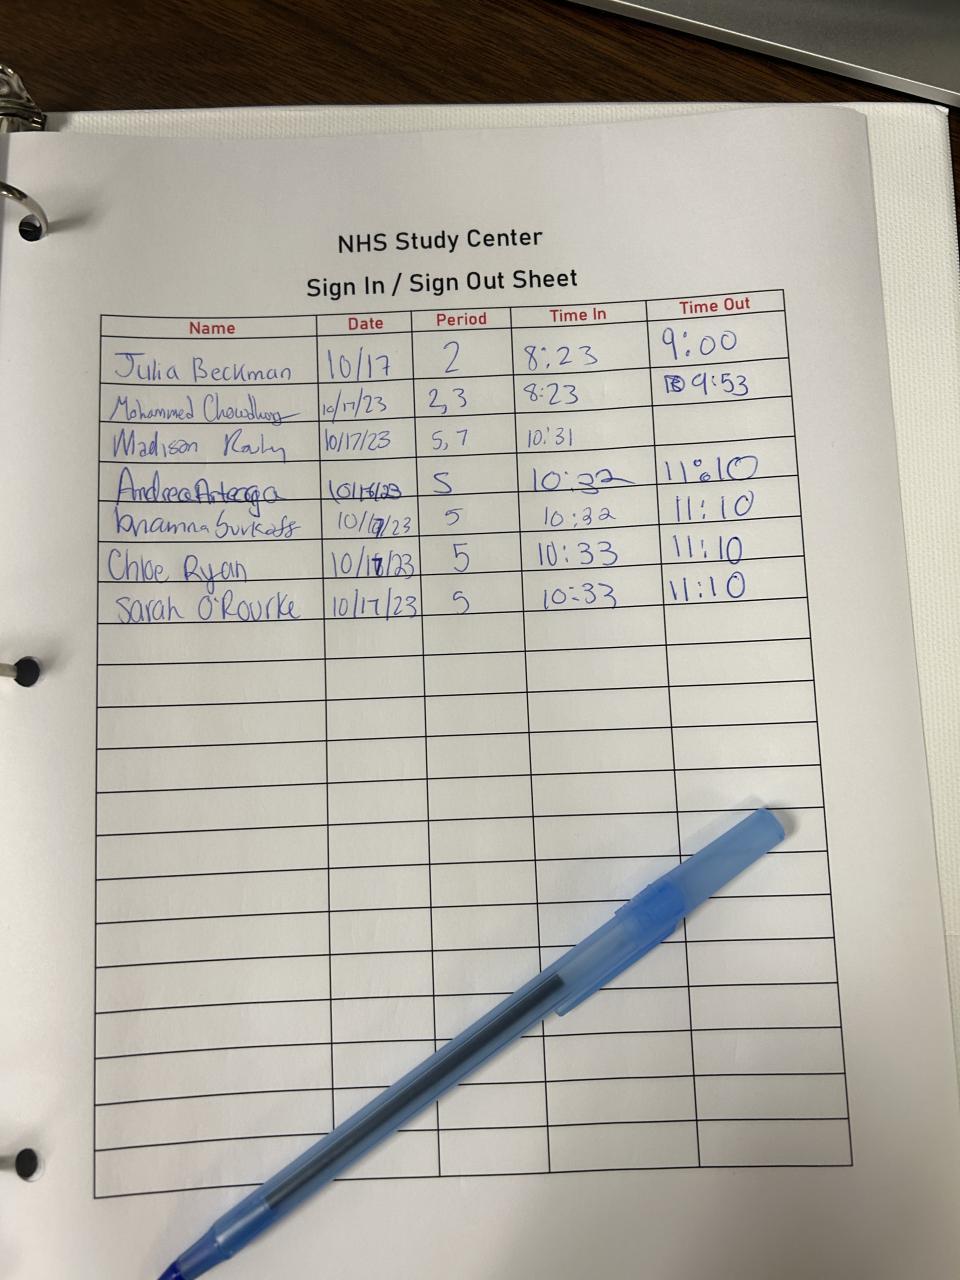 NHS Study Center
Sign In / Sign Out Sheet
Name Date Period Time In Time Out
Julia Beckman 10/17 2 8:23 9:00
Mohammed Chowdhury 10/17/23 2,3 8:23 9:53
Madison 10/17/23 5,7 10:31
Andrea Arteaga 5 10:32 11:10
10/17/23 5 10:32 11:10
Chloe Ryan 10/17/23 5 10:33 11:10
Sarah O'Rourke 10/17/23 5 10:33 11:10